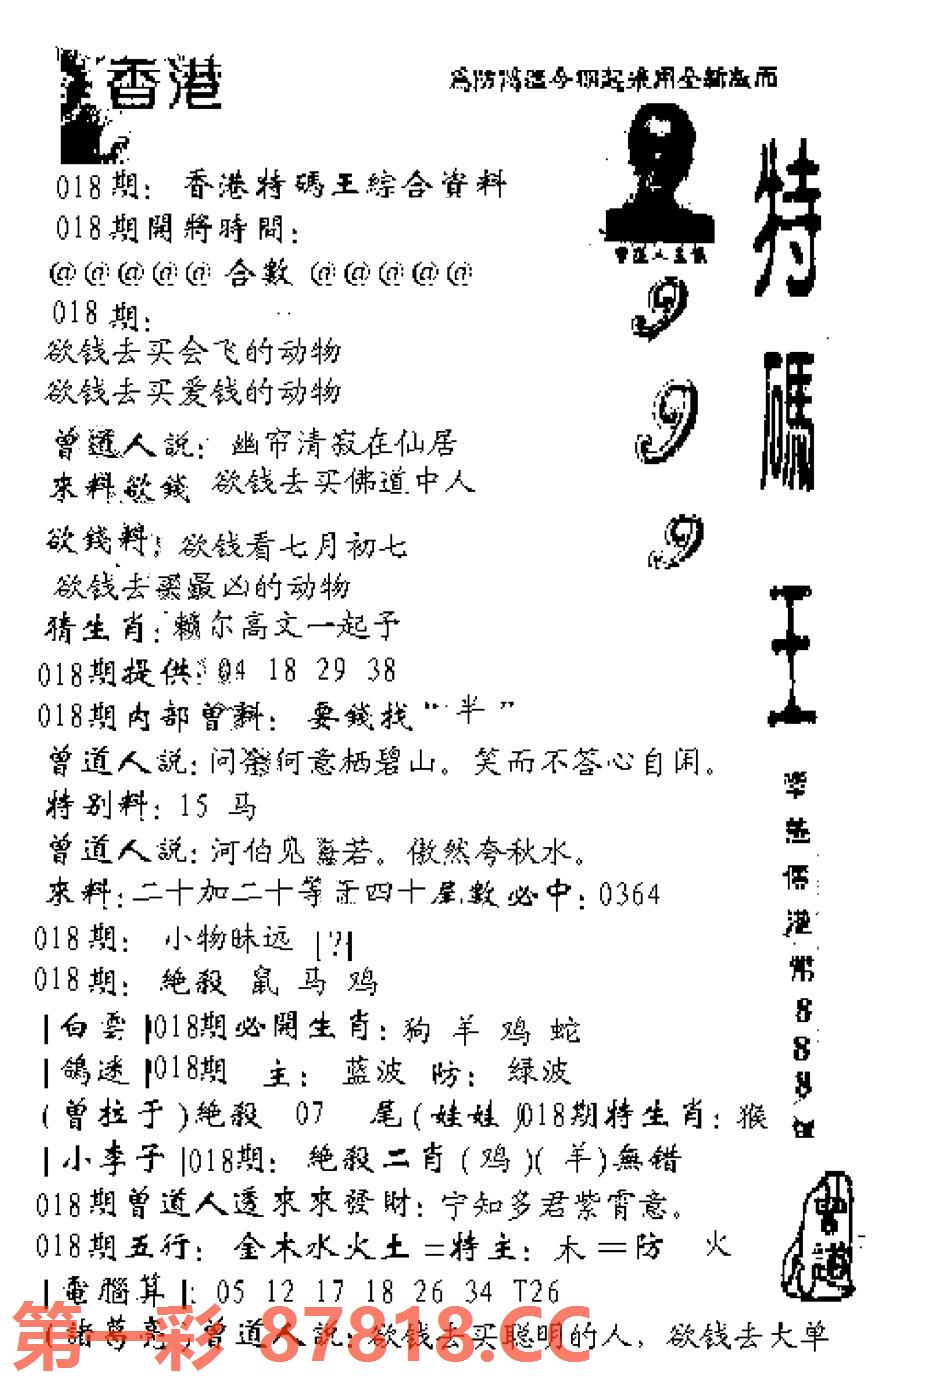 香港
特碼王
999
018期：香港特碼王綜合資料
018期開將時間：
@@@@@合數@@@@@
018期：
欲钱去买会飞的动物
欲钱去买爱钱的动物
曾道人説：幽帘清寂在仙居
來料欲錢 欲钱去买佛道中人
欲錢料：欲钱看七月初七
欲钱去买最凶的动物
猜生肖：赖尔高文一起予
018期提供：04 18 29 38
018期内部曾料：要錢找“半”
曾道人説：问爾何意栖碧山。笑而不答心自闲。
特别料：15 马
曾道人説：河伯见海若。傲然夸秋水。
來料：二十加二十等于四十尾數必中：0364
018期：小物昧远 |?|
018期：絶殺 鼠 马 鸡
|白雲|018期必開生肖：狗 羊 鸡 蛇
|鴿迷|018期 主：蓝波 防：绿波
(曾拉于)絶殺 07 尾(娃娃)018期特生肖：猴
|小李子|018期：絶殺二肖(鸡)(羊)無错
018期曾道人透來來發財：宁知多君紫霄意。
018期五行：金木水火土=特主：木=防 火
|電腦算|：05 12 17 18 26 34 T26
(諸葛亮)曾道人説：欲钱去买聪明的人，欲钱去大单
第一彩 87818.CC